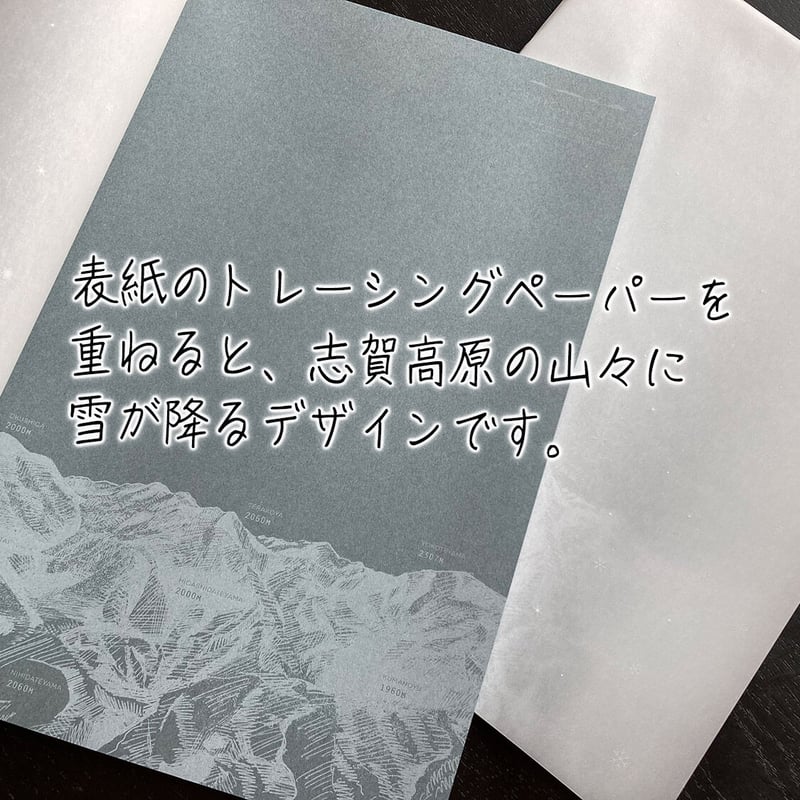 表紙のトレーシングペーパーを
重ねると、志賀高原の山々に
雪が降るデザインです。
2000M
2060M
2307M
HIGASHIDATEYAMA
2000M
NISHIDATEYAMA
2060M
1960M